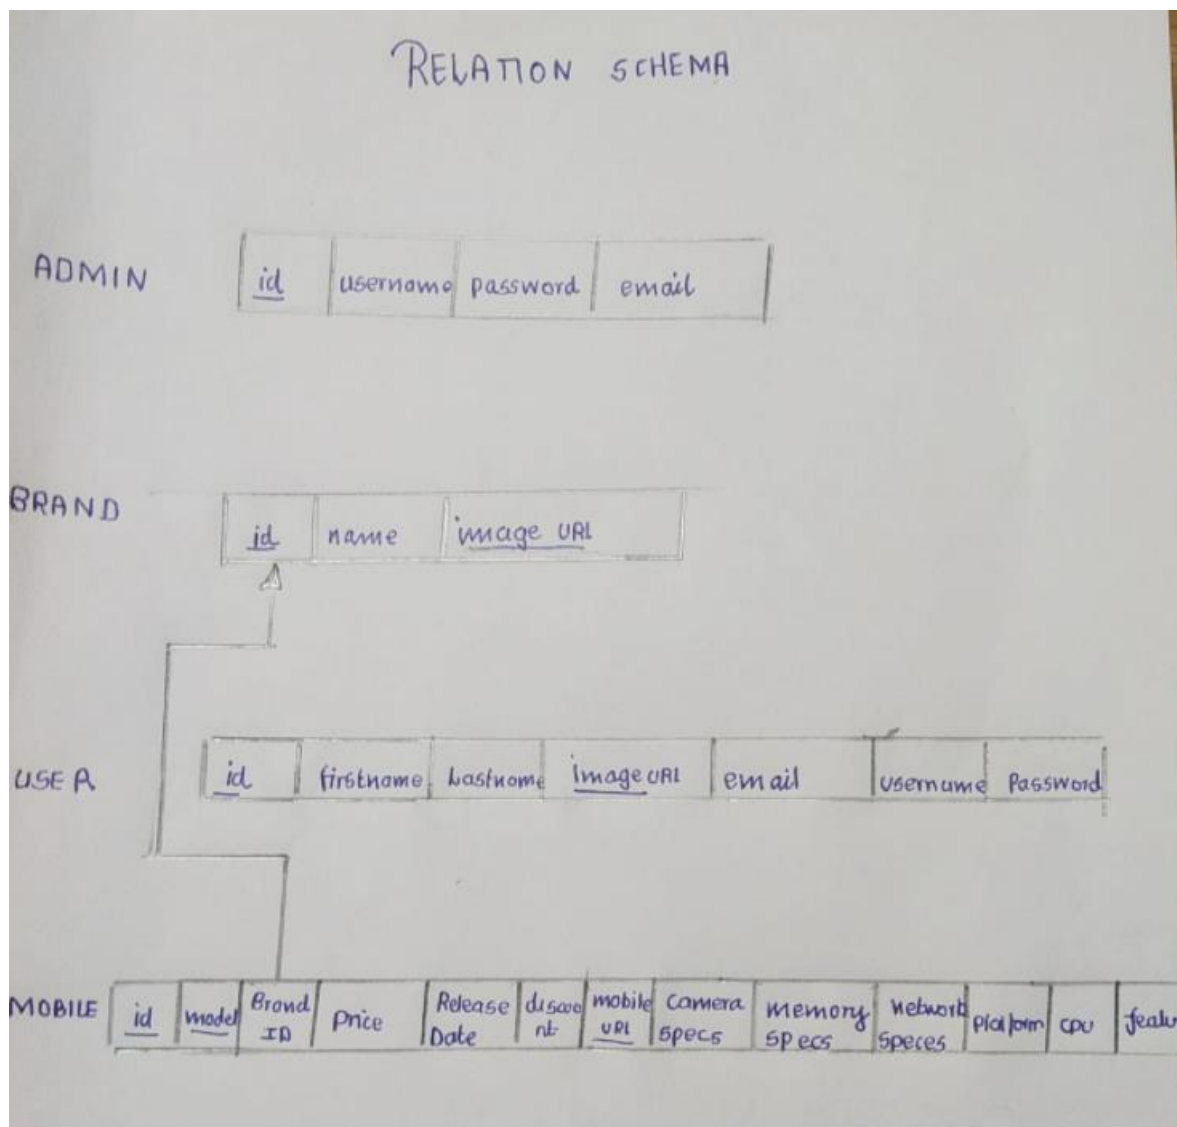 RELATION SCHEMA
ADMIN id username password email
BRAND id name image URL
USER id firstname Lastname Image URL email username Password
MOBILE id model Brand ID Price Release Date discount mobile URL Camera specs memory specs Network speces platform CPU featu